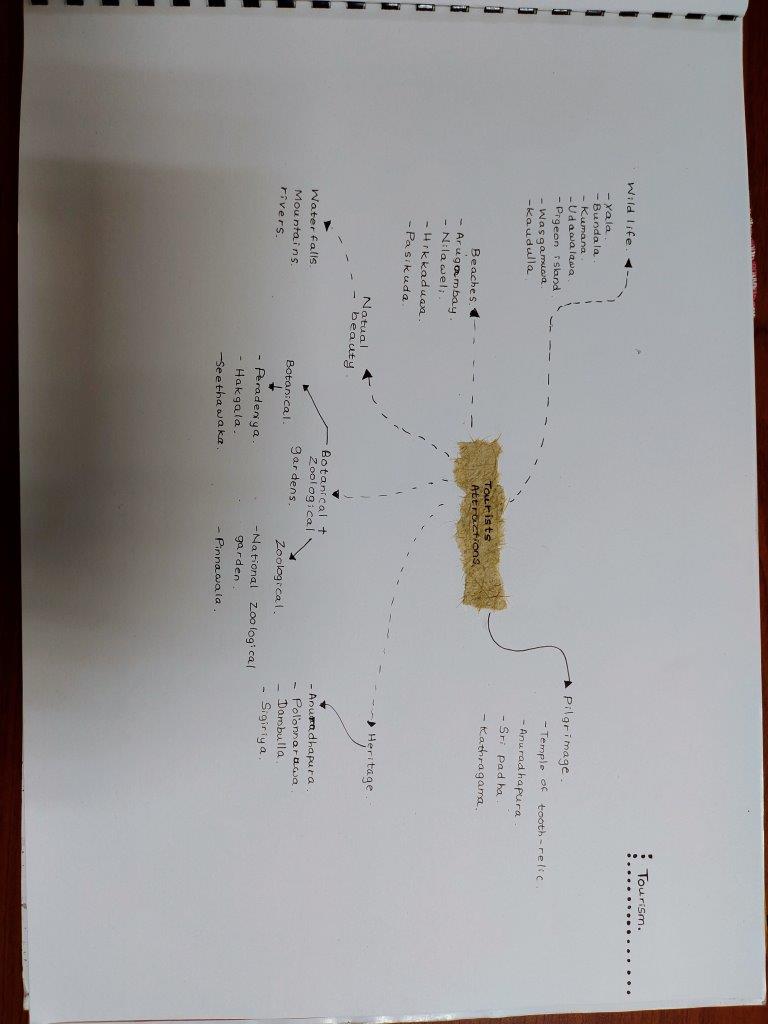 Tourism.
Tourists
Attractions
Wild life.
- Yala.
- Bundala
- Kumana
- Udawalawa
- Pigeon island
- Wasgamuwa
- Kaudulla
Pilgrimage.
- Temple of tooth-relic.
- Anuradhapura.
- Sri padha.
- Kathragama.
Beaches.
- Arugambay.
- Nilaweli.
- Hikkaduwa.
- Pasikuda.
Natual
beauty.
Water falls.
Mountains.
rivers.
Botanical +
Zoological
gardens.
Botanical.
- Peradeniya.
- Hakgala.
- Seethawaka.
Zoological.
- National Zoological
garden.
- Pinnawala.
Heritage.
- Anuradhapura.
- Polonnaruwa
- Dambulla.
- Sigiriya.